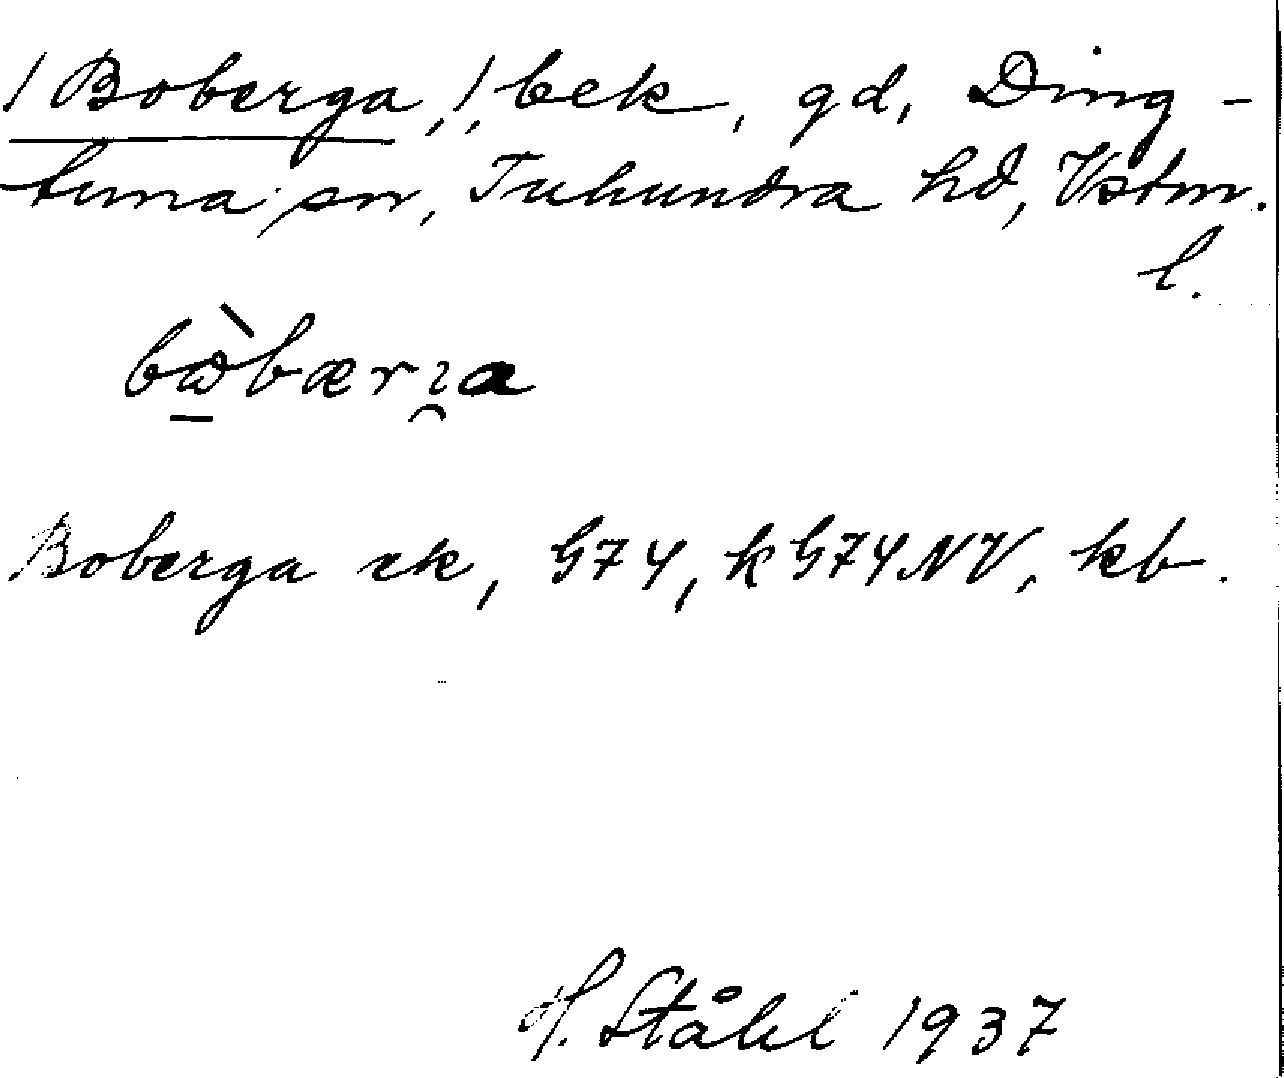 /Boberga,/, bek, gd, Ding-
tuna sn, Tuhundra hd, Vstm.
l.
Boberga ek, G74, k G74NV, kb.
H. Ståhl 1937